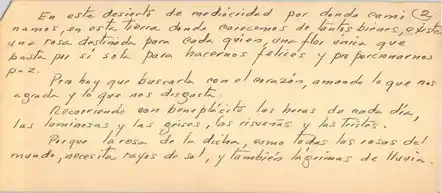 En este desierto de mediocridad por donde cami (2)
namos, en esta tierra donde carecemos de tantos bienes, existe
una rosa destinada para cada quien, una flor unica que
basta por sí sola para hacernos felices y proporcionarnos
paz.
Pero hay que buscarla con el corazón, amando lo que nos
agrada y lo que nos disgusta.
Recorriendo con beneplácito las horas de cada día,
las luminosas y las grises, las risueñas y las tristes.
Porque la rosa de la dicha, como todas las rosas del
mundo, necesita rayos de sol, y también lágrimas de lluvia.